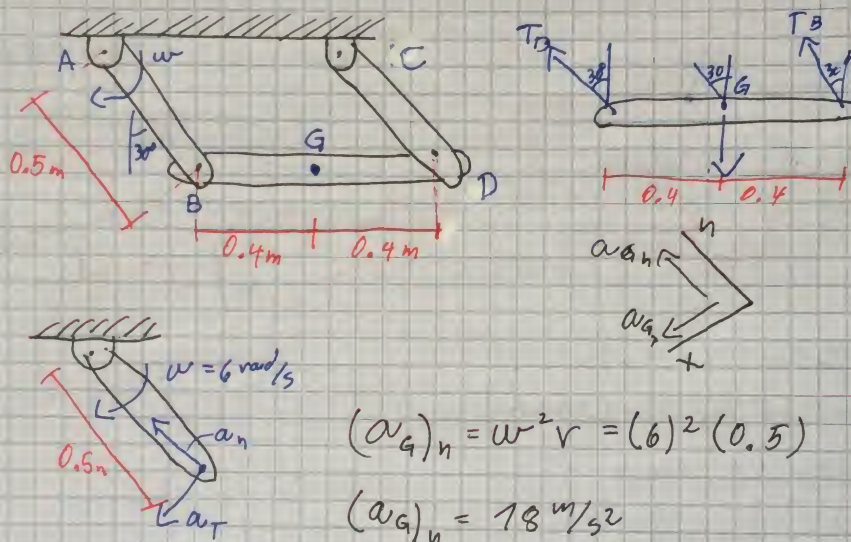 A
w
C
0.5m
30°
G
B
D
0.4m
0.4m
TB
30°
30
G
TB
30
0.4
0.4
n
aGn
aGt
t
w = 6 rad/s
an
0.5m
aT
(aG)n = w²r = (6)² (0.5)
(aG)n = 18 m/s²